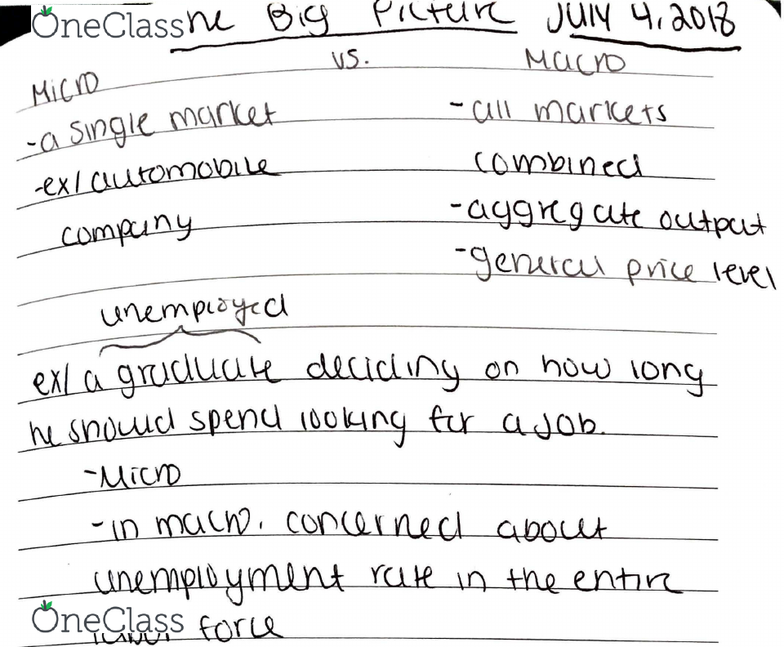 OneClass
ne Big Picture JULY 4, 2018
Micro vs. Macro
-a single market
-ex/ automobile
company
-all markets
combined
-aggregate output
-general price level
unemployed
ex/ a graduate deciding on how long
he should spend looking for a job.
-Micro
-in macro, concerned about
unemployment rate in the entire
OneClass
force